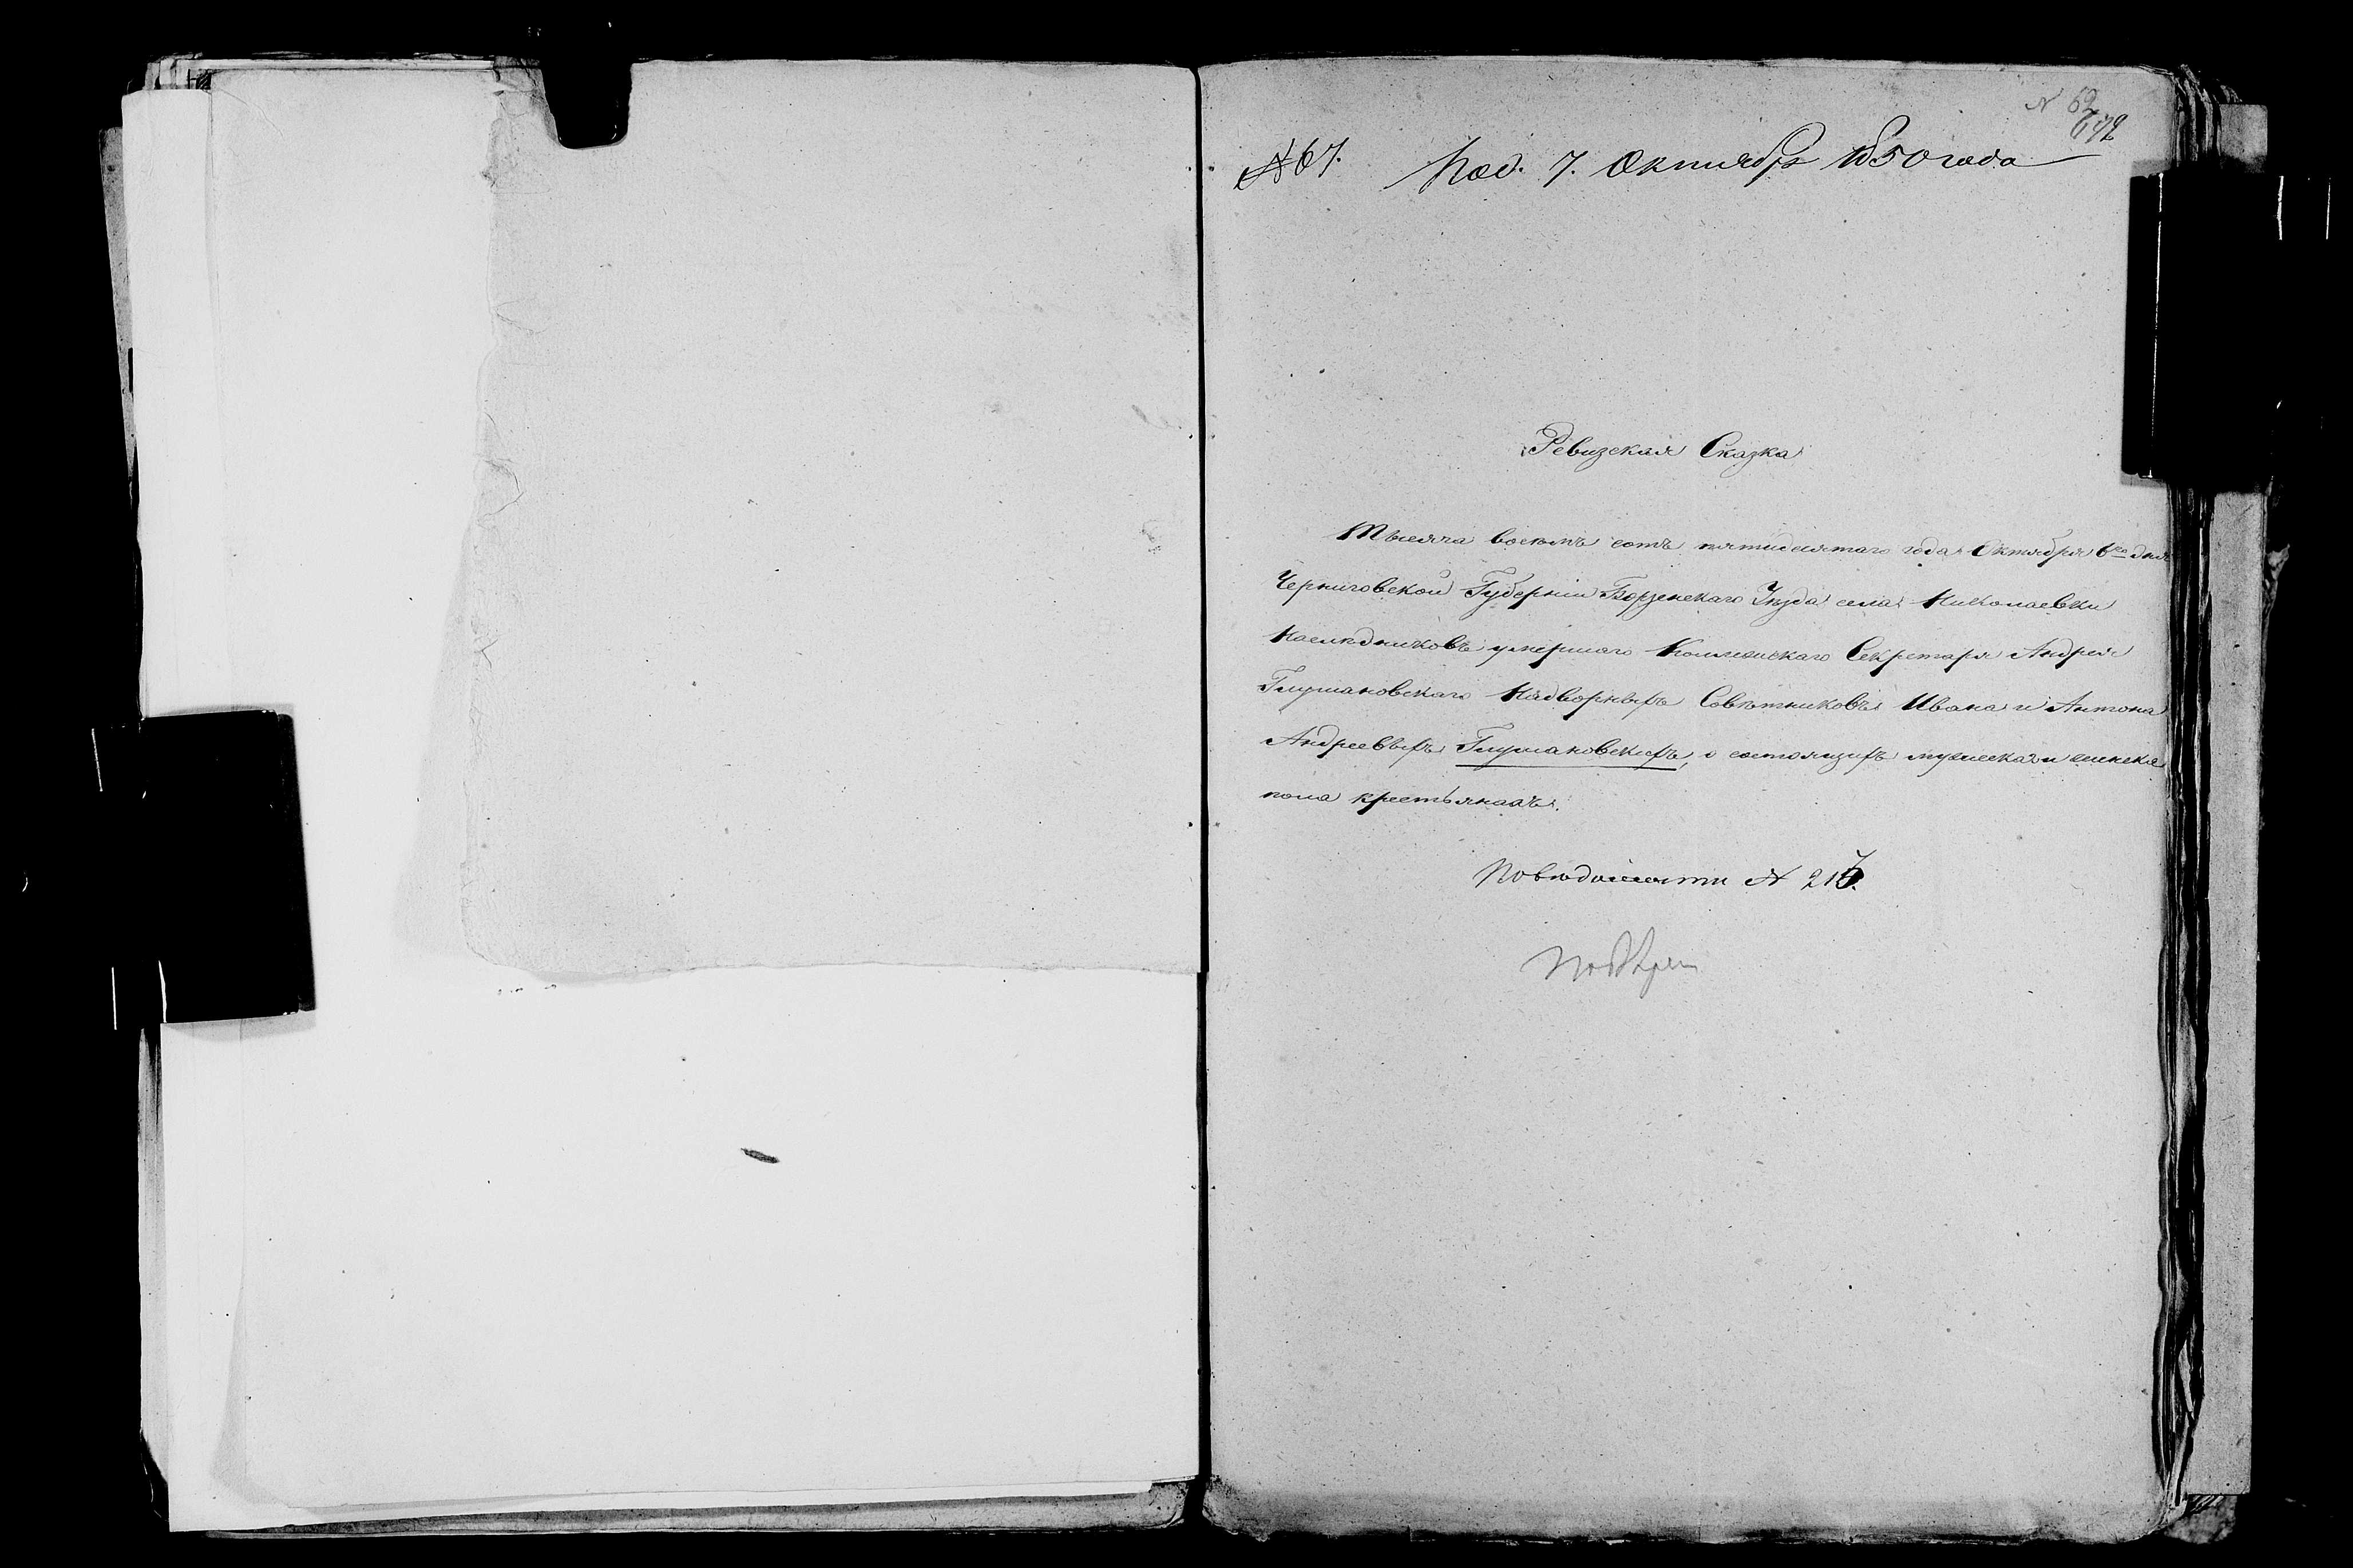 N 62
642
№ 67. Под. 7. Октября 1850 года
Ревизская Сказка
Тысяча восемь сотъ пятидесятаго года Октября 6го дня
Черниговской Губерніи Борзенскаго Уезда села Николаевки
Наследниковъ умершаго Коллежскаго Секретаря Андрея
Глушановскаго Надворныхъ Советниковъ Ивана и Антона
Андреевыхъ Глушановскихъ, о состоящихъ мужеска и женска
пола крестьянахъ.
По ведомости №